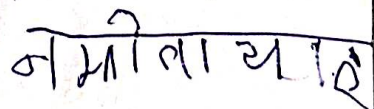 नमीता याई